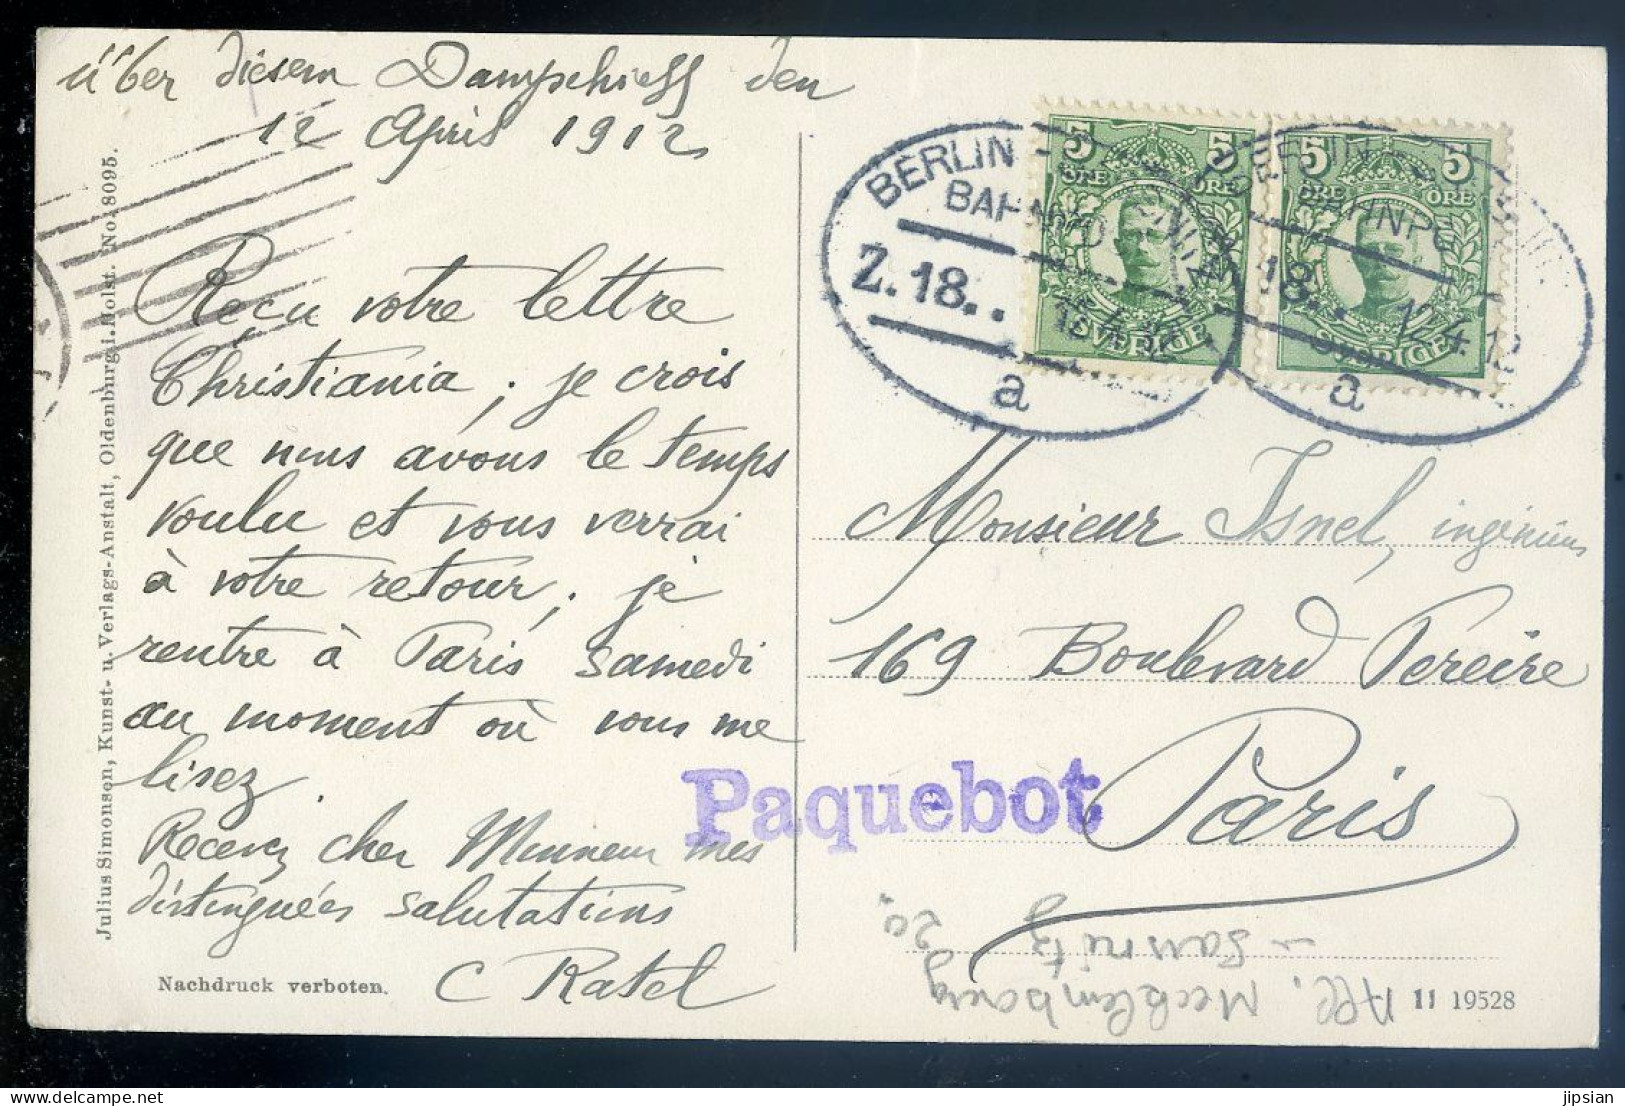 über diesem Dampschieff den
12 April 1912
Reçu votre lettre
Christiania ; je crois
que nous avons le temps
voulu et vous verrai
à votre retour ; je
rentre à Paris samedi
au moment où vous me
lisez.
Recevez cher Monsieur mes
distinguées salutations
C Ratel
Julius Simonson, Kunst- u. Verlags-Anstalt, Oldenburg i. Holst. No. 8095.
Nachdruck verboten.
5 5
ÖRE ÖRE
SVERIGE
5 5
ÖRE ÖRE
SVERIGE
BERLIN
BAHNPO
Z. 18..
a
BAHNPO
18.. 12.4.12
a
Monsieur Isnel, ingénieur
169 Boulevard Pereire
Paris
Paquebot
All. Mecklembourg
- Sassnitz
20.
11 19528
jipsian